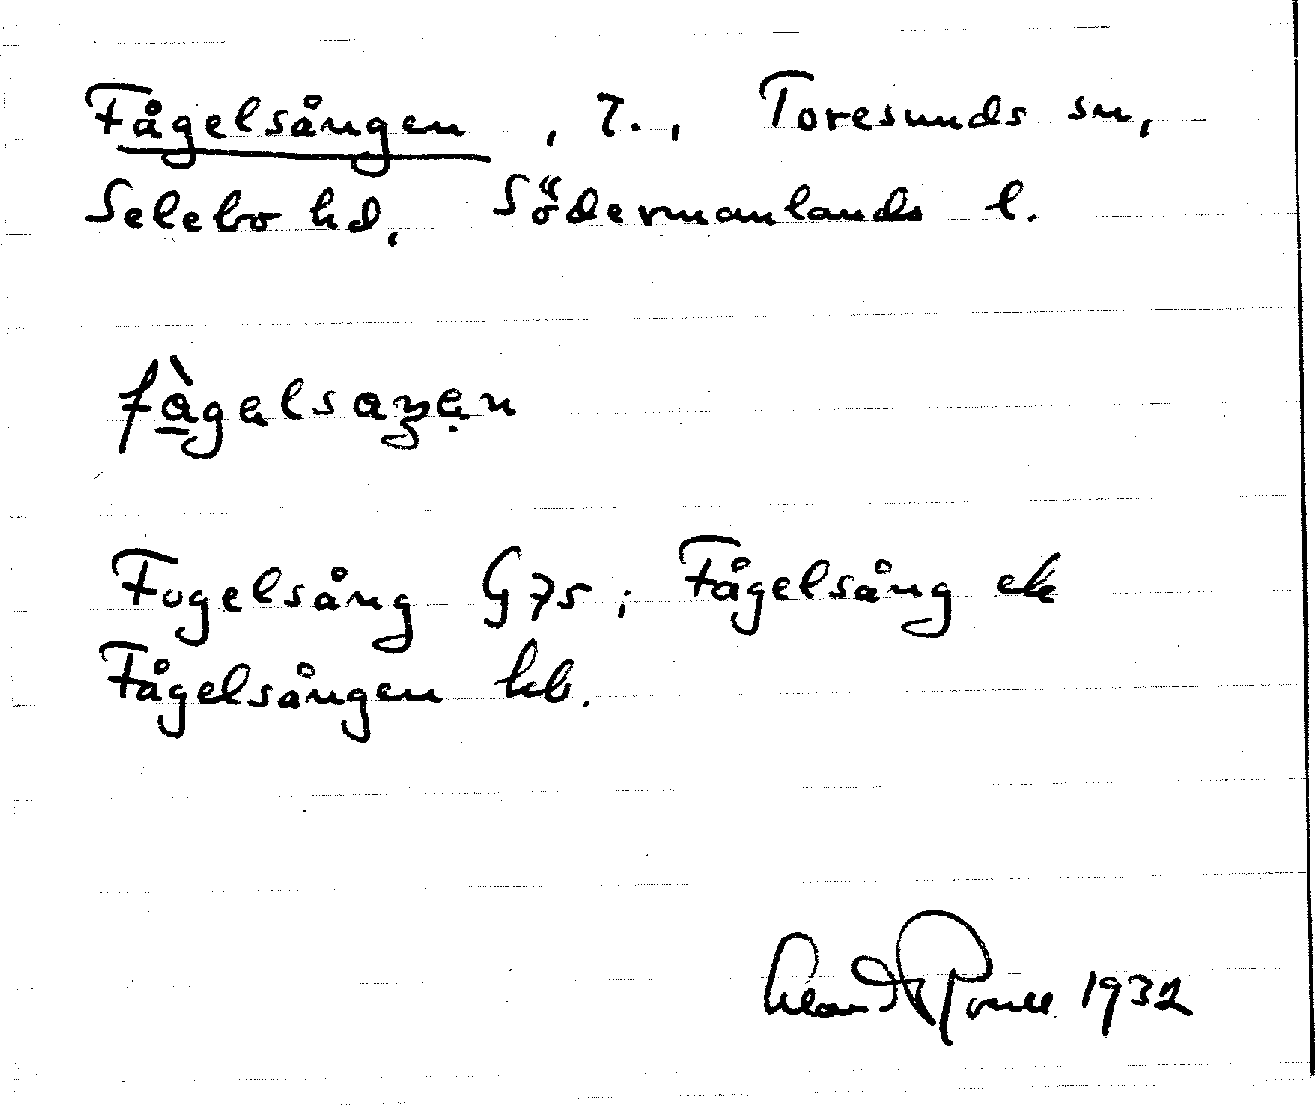 Fågelsången, T., Toresunds sn,
Selebo hd, Södermanlands l.
fågelsaŋen
Fogelsång G 75; Fågelsång ek
Fågelsången kb.
1932